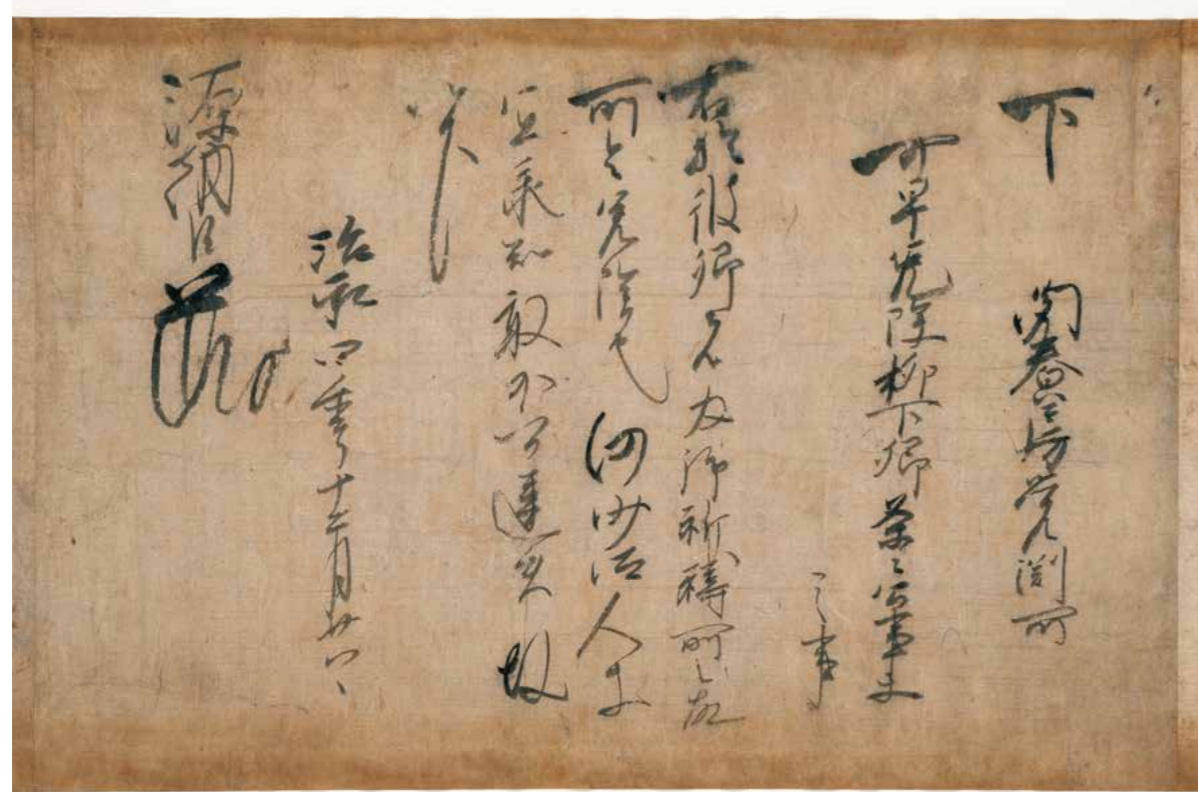 下　聞春坊覚淵所
可早免除柳下郷菜々公事
之事
右於彼郷者為御祈祷所之故
所令免除也仍沙汰人等
宜承知敢不可違失故
以下
治承四年十二月廿八日
源朝臣